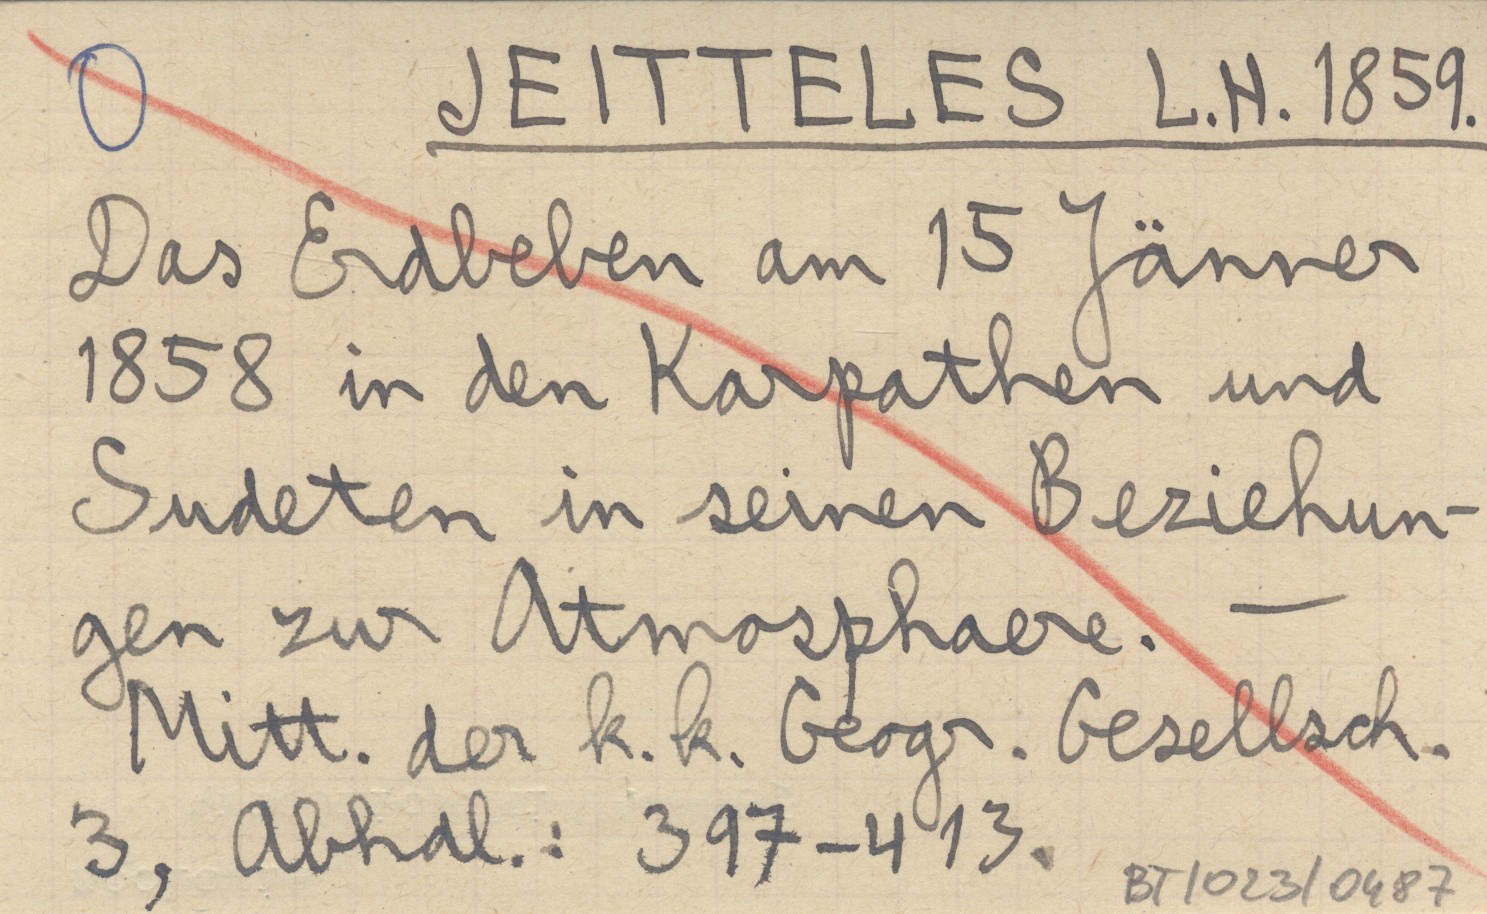 JEITTELES L.H. 1859.
Das Erdbeben am 15 Jänner
1858 in den Karpathen und
Sudeten in seinen Beziehun-
gen zur Atmosphaere. —
Mitt. der k.k. Geogr. Gesellsch.
3, Abhdl.: 397-413.
BT/023/0487